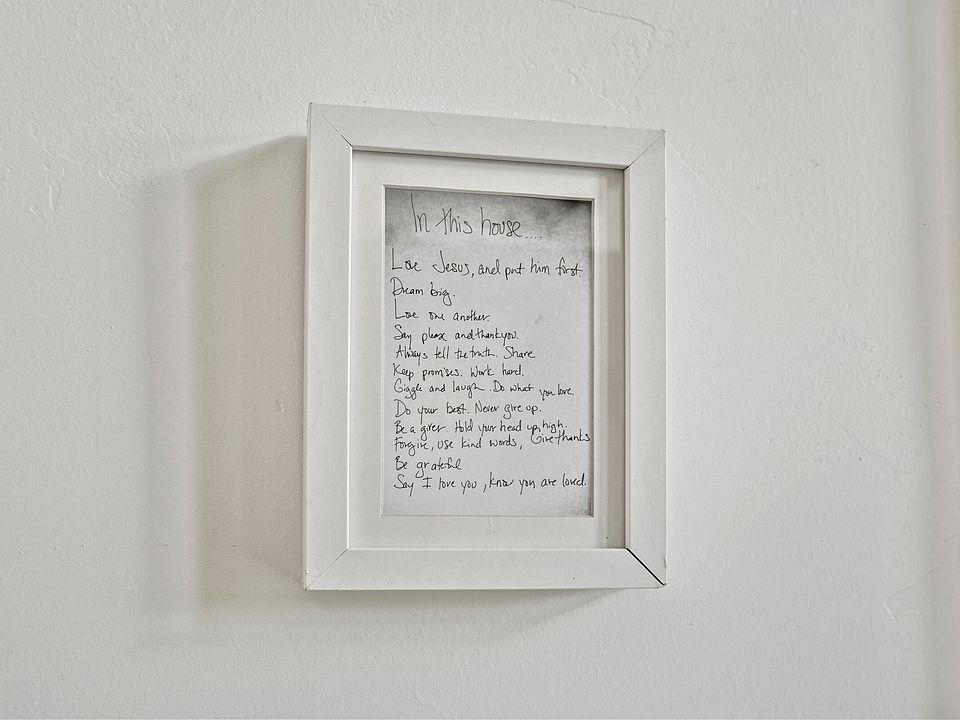 In this house....
Love Jesus, and put him first.
Dream big.
Love one another.
Say please and thankyou.
Always tell the truth. Share
Keep promises. Work hard.
Giggle and laugh. Do what you love.
Do your best. Never give up.
Be a giver. Hold your head up high.
Forgive, use kind words, Give thanks
Be grateful
Say I love you, know you are loved.